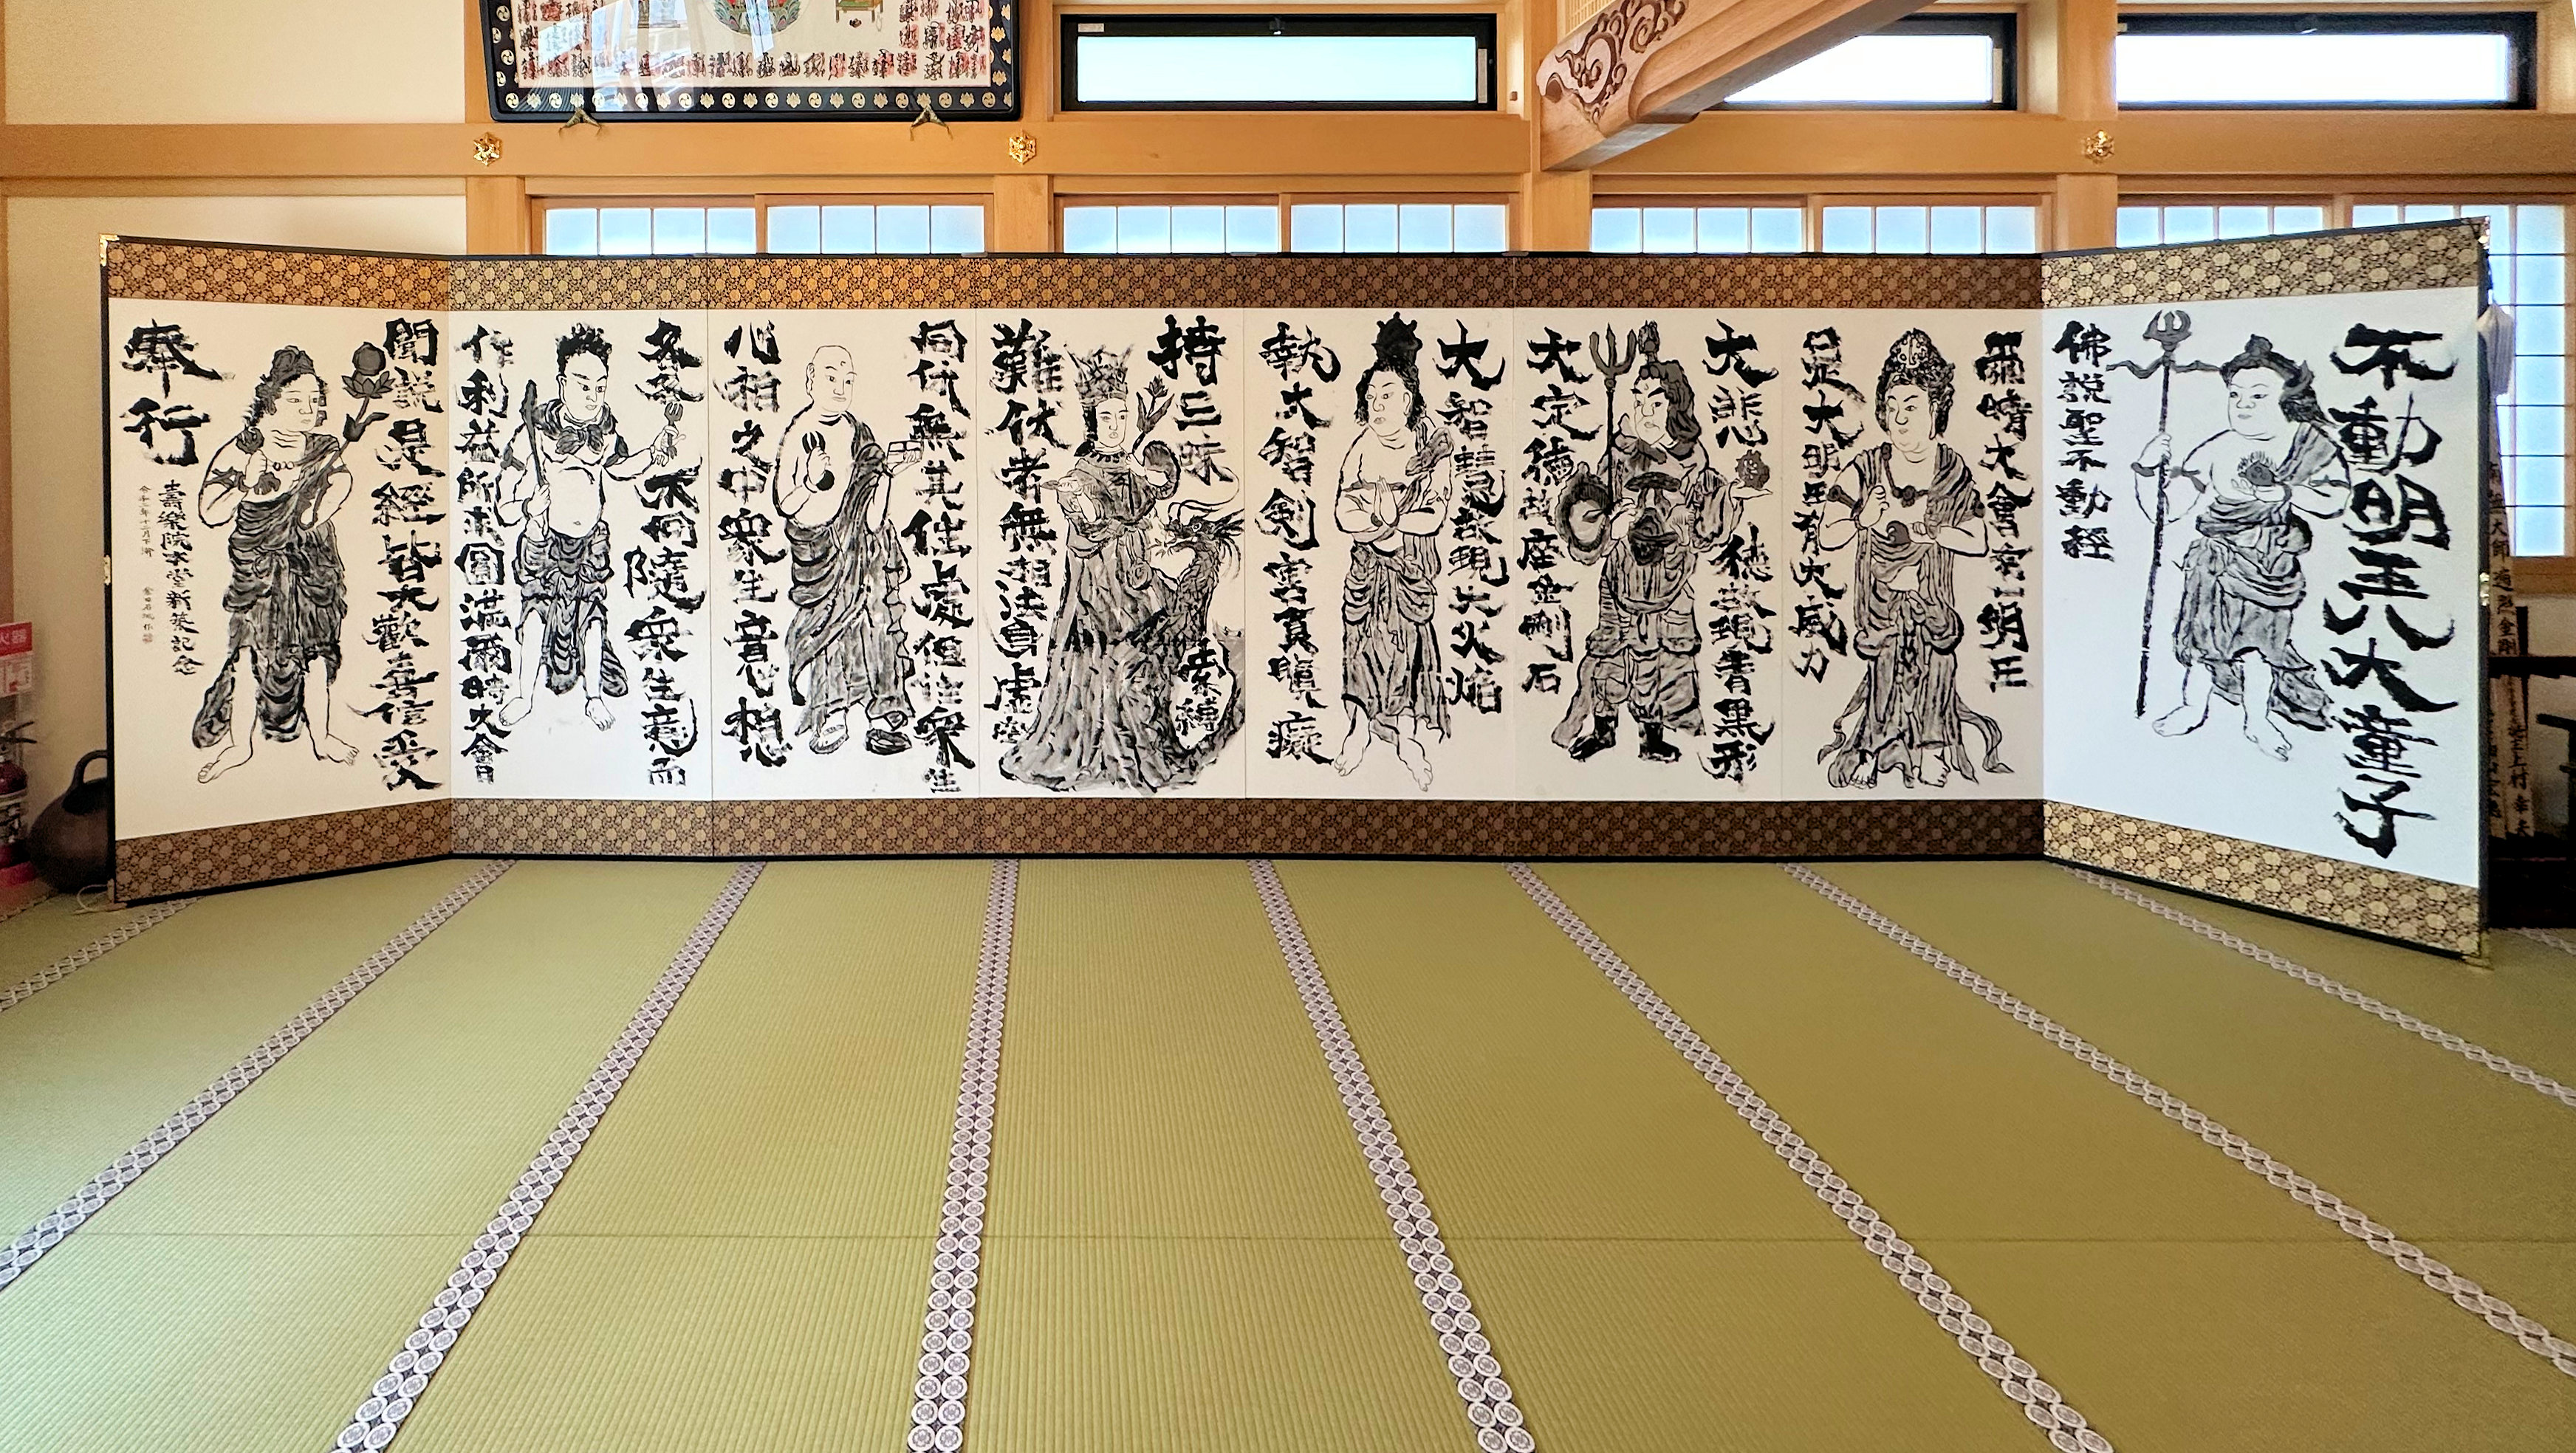 不動明王八大童子
佛説聖不動經
爾時大會有一明王
是大明王有大威力
大悲徳故現青黒形
大定徳故座金剛石
大智慧故現大火焔
執大智剣害貪瞋癡
持三昧索縛
難伏者無相法身虚空
同体無其住處但住衆生
心相之中衆生意想
各各不同隨衆生意而
作利益所求圓満爾時大會
聞説是經皆大歡喜信受
奉行
壽樂院本堂新築記念